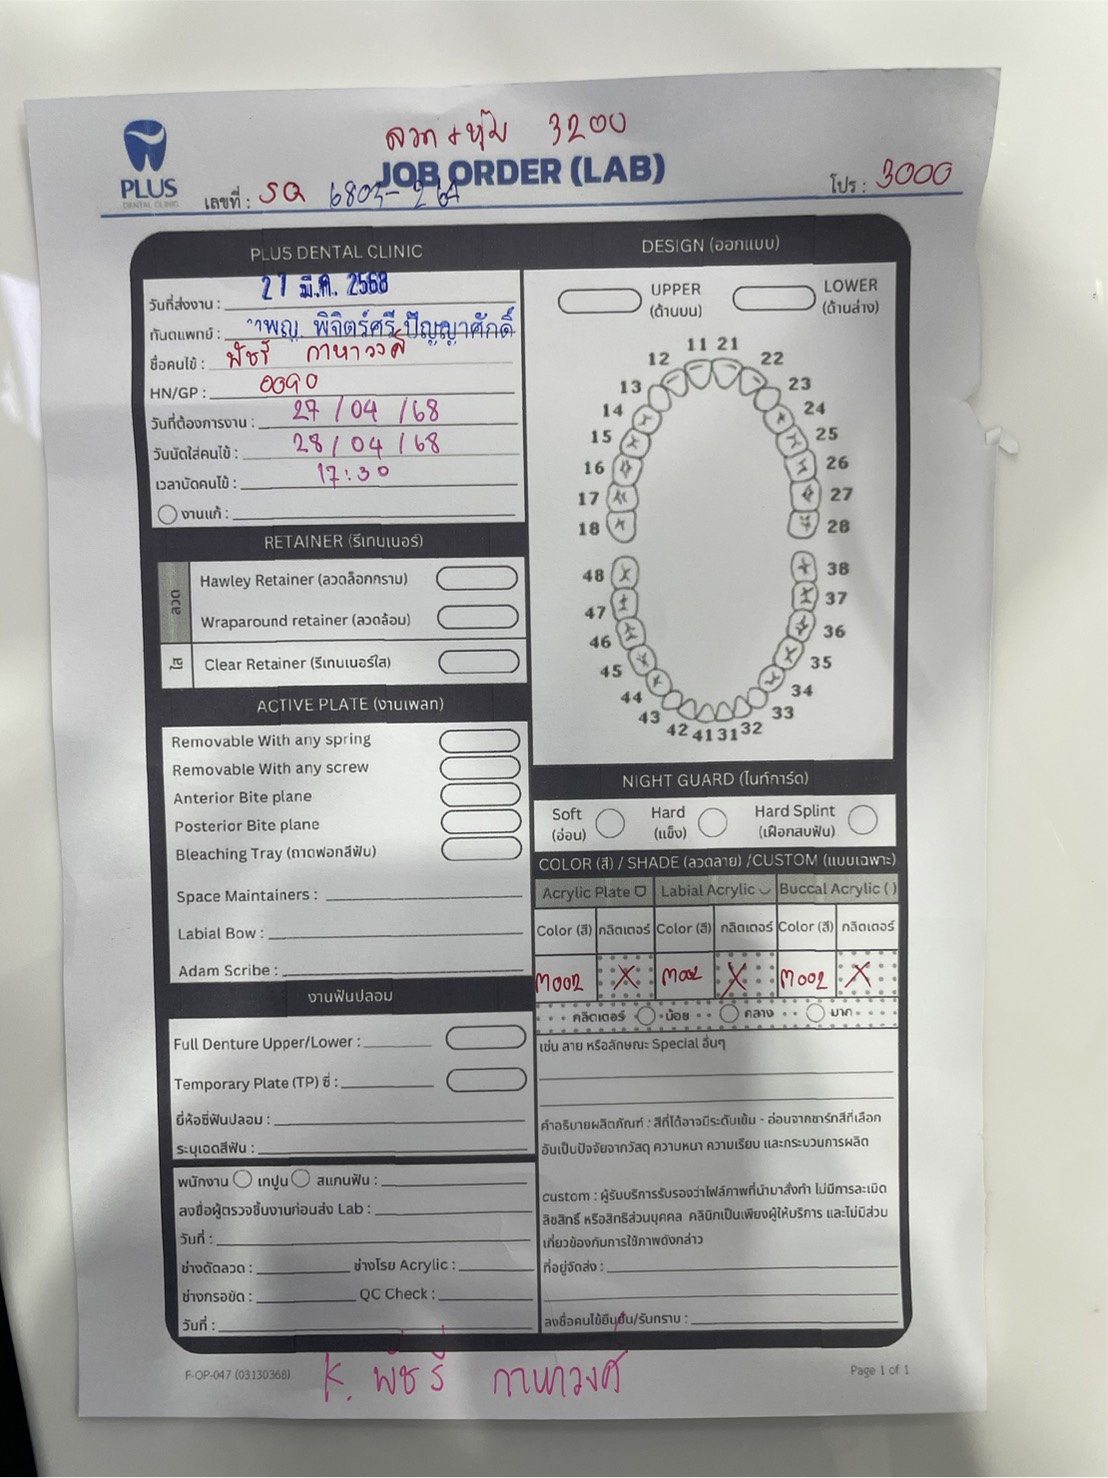 ลวด + หุ้ม 3200
PLUS
DENTAL CLINIC
JOB ORDER (LAB)
เลขที่ : SQ 6803-264
โปร : 3000
PLUS DENTAL CLINIC
วันที่ส่งงาน : 27 มี.ค. 2568
ทันตแพทย์ : พิจิตร์ศรี ปัญญาศักดิ์
ชื่อคนไข้ : พัชรี กาหาวงศ์
HN/GP : 0090
วันที่ต้องการงาน : 27 / 04 / 68
วันนัดใส่คนไข้ : 28 / 04 / 68
เวลานัดคนไข้ : 17:30
งานแก้ :
RETAINER (รีเทนเนอร์)
ลวด
Hawley Retainer (ลวดล็อกกราม)
Wraparound retainer (ลวดล้อม)
ใส
Clear Retainer (รีเทนเนอร์ใส)
ACTIVE PLATE (งานเพลท)
Removable With any spring
Removable With any screw
Anterior Bite plane
Posterior Bite plane
Bleaching Tray (ถาดฟอกสีฟัน)
Space Maintainers :
Labial Bow :
Adam Scribe :
งานฟันปลอม
Full Denture Upper/Lower :
Temporary Plate (TP) ซี่ :
ยี่ห้อซี่ฟันปลอม :
ระบุเฉดสีฟัน :
พนักงาน เทปูน สแกนฟัน :
ลงชื่อผู้ตรวจชิ้นงานก่อนส่ง Lab :
วันที่ :
ช่างดัดลวด : ช่างโรย Acrylic :
ช่างกรอขัด : QC Check :
วันที่ :
DESIGN (ออกแบบ)
UPPER
(ด้านบน)
LOWER
(ด้านล่าง)
11 21
12 22
13 23
14 24
15 25
16 26
17 27
18 28
48 38
47 37
46 36
45 35
44 34
43 33
42 41 31 32
NIGHT GUARD (ไนท์การ์ด)
Soft
(อ่อน)
Hard
(แข็ง)
Hard Splint
(เฝือกสบฟัน)
COLOR (สี) / SHADE (ลวดลาย) /CUSTOM (แบบเฉพาะ)
Acrylic Plate Labial Acrylic Buccal Acrylic ( )
Color (สี) กลิตเตอร์ Color (สี) กลิตเตอร์ Color (สี) กลิตเตอร์
M002 X M002 X M002 X
กลิตเตอร์ น้อย กลาง มาก
เช่น ลาย หรือลักษณะ Special อื่นๆ
คำอธิบายผลิตภัณฑ์ : สีที่ได้อาจมีระดับเข้ม - อ่อนจากชาร์กสีที่เลือก
อันเป็นปัจจัยจากวัสดุ ความหนา ความเรียบ และกระบวนการผลิต
custom : ผู้รับบริการรับรองว่าไฟล์ภาพที่นำมาสั่งทำ ไม่มีการละเมิด
ลิขสิทธิ์ หรือสิทธิส่วนบุคคล คลินิกเป็นเพียงผู้ให้บริการ และไม่มีส่วน
เกี่ยวข้องกับการใช้ภาพดังกล่าว
ที่อยู่จัดส่ง :
ลงชื่อคนไข้ยืนยัน/รับทราบ :
F-OP-047 (03130368)
K. พัชรี กาหาวงศ์
Page 1 of 1